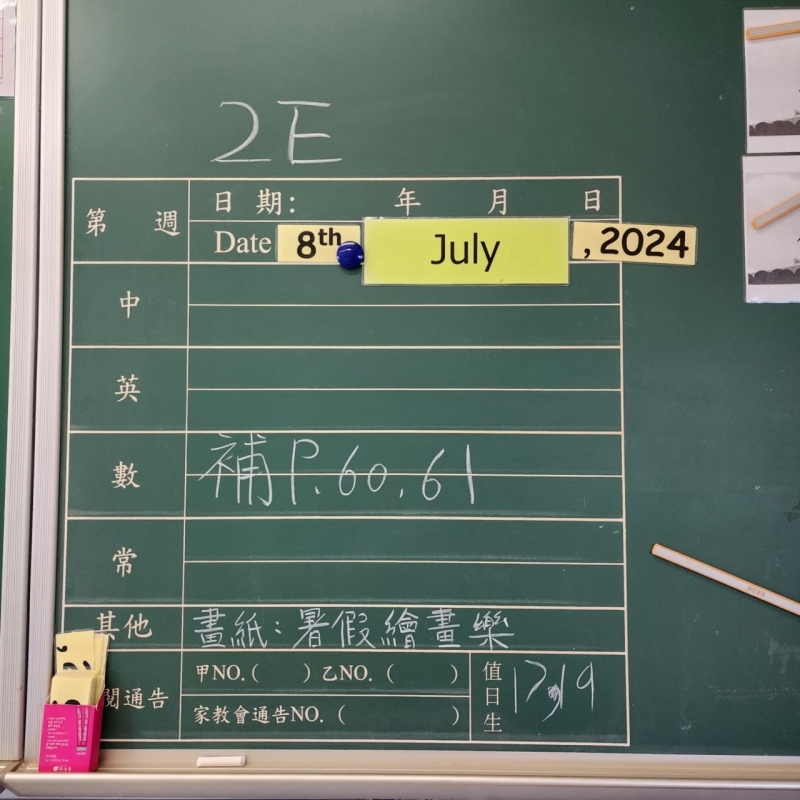 2E
第 週
日期: 年 月 日
Date 8th July , 2024
中
英
數 補 P. 60, 61
常
其他 畫紙:暑假繪畫樂
閱通告
甲NO.( ) 乙NO. ( )
家教會通告NO. ( )
值日生 17, 19